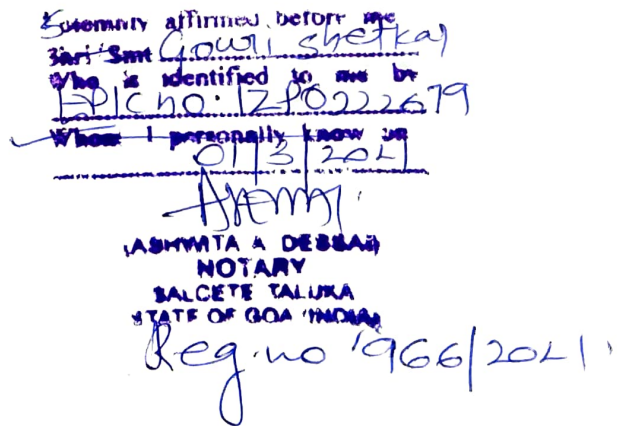 Solemnly affirmed before me
Shri Smt Gouri Shetkar
Who is identified to me by
EPIC no. IZP0222679
Whom I personally know on
01/3/2021
ASHWITA A DESSAI
NOTARY
SALCETE TALUKA
STATE OF GOA (INDIA)
Reg. no 966/2021.